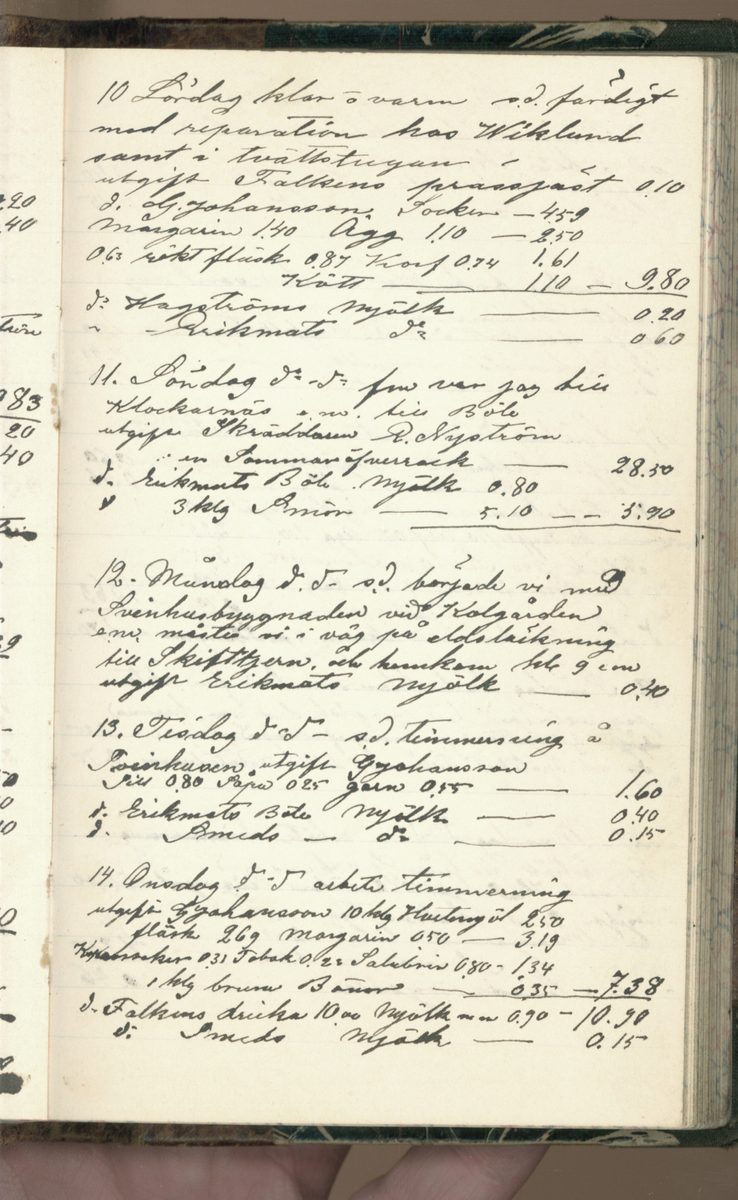 10 Lördag klar o varm s.d. färdigt
med reparation hos Wiklund
samt i tvättstugan
utgift Falkens prässjäst 0.10
d. G. Johansson Socker — 4.59
Margarin 1.40 Ägg 1.10 — 2.50
0.63 rökt fläsk 0.87 Korf 0.74 1.61
Kött — 1.10 — 9.80
d:o Hagströms Mjölk — 0.20
" - Erikmats d:o — 0.60
11. Söndag d:o - d:o fm var jag till
Klockarnäs e.m. till Böle
utgift Skräddaren R. Nyström
en Sommaröfverrock — 28.50
d. Erikmats Böle Mjölk 0.80
" 3 klg Smör — 5.10 — 5.90
12. Måndag d. d - s.d. började vi med
Svinhusbyggnaden vid Kolgården
em. måste vi i väg på eldsläckning
till Skifttjern, och hemkom kle 9 em
utgift Erikmats Mjölk — 0.40
13. Tisdag d d - s.d. timmerning å
Svinhusen utgift G Johansson
Sill 0.80 Såpa 0.25 garn 0.55 — 1.60
d. Erikmats Böle Mjölk — 0.40
d. Smeds — d:o — 0.15
14. Onsdag d - d arbete timmerning
utgift G Johansson 10 klg Hvetemjöl 2.50
fläsk 2.69 Margarin 0.50 — 3.19
0.31 Tobak 0.23 Salubrin 0.80 - 1.34
1 klg bruna Bönor — 0.35 — 7.38
d. Falkens dricka 10.00 Mjölk m m 0.90 — 10.90
d: Smeds Mjölk — 0.15
20
40
83
20
40